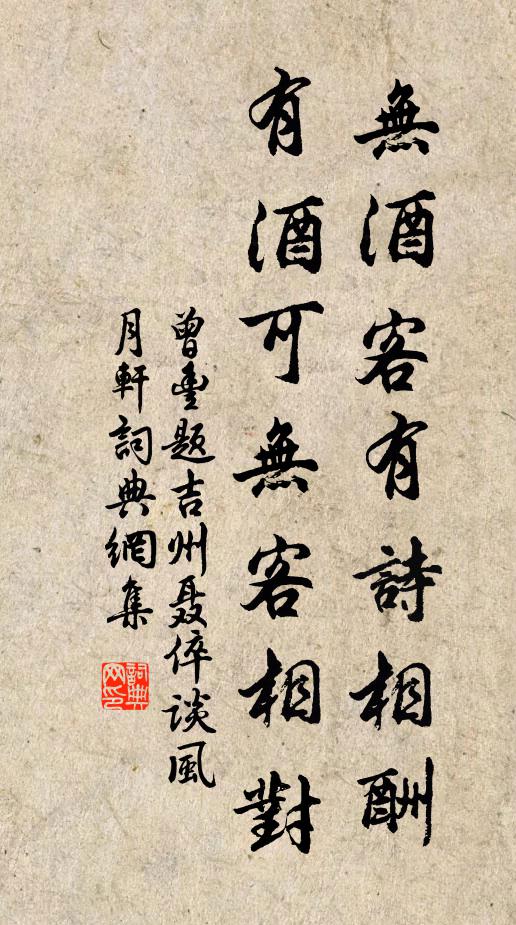 無酒客有詩相酬
有酒可無客相對
曾豐題吉州聂倅談風
月軒詞典網集
詞典
网印